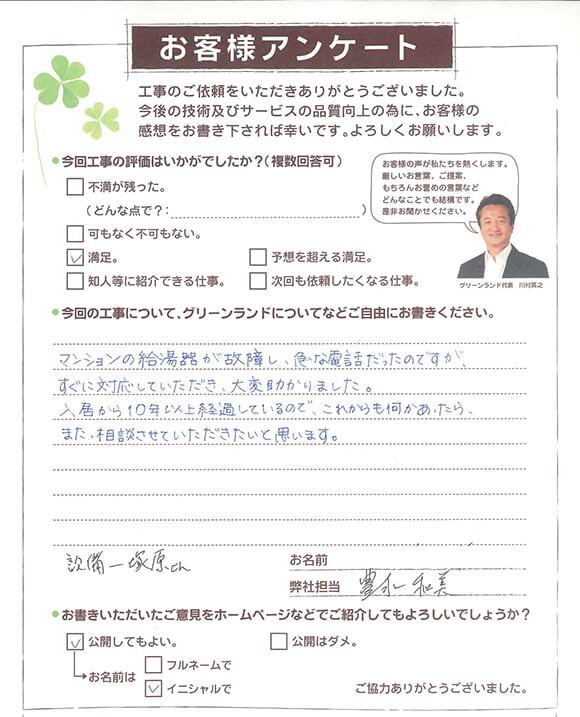 お客様アンケート
工事のご依頼をいただきありがとうございました。
今後の技術及びサービスの品質向上の為に、お客様の
感想をお書き下されば幸いです。よろしくお願いします。
今回工事の評価はいかがでしたか?(複数回答可)
不満が残った。
(どんな点で?: )
可もなく不可もない。
満足。
予想を超える満足。
知人等に紹介できる仕事。
次回も依頼したくなる仕事。
お客様の声が私たちを熱くします。
厳しいお言葉、ご提案、
もちろんお誉めの言葉など
どんなことでも結構です。
是非お聞かせください。
グリーンランド代表 川村英之
今回の工事について、グリーンランドについてなどご自由にお書きください。
マンションの給湯器が故障し、急な電話だったのですが、
すぐに対応していただき、大変助かりました。
入居から10年以上経過しているので、これからも何かあったら、
また、相談させていただきたいと思います。
設備一塚原さん
お名前
弊社担当 豊永 和美
お書きいただいたご意見をホームページなどでご紹介してもよろしいでしょうか?
公開してもよい。
公開はダメ。
お名前は
フルネームで
イニシャルで
ご協力ありがとうございました。